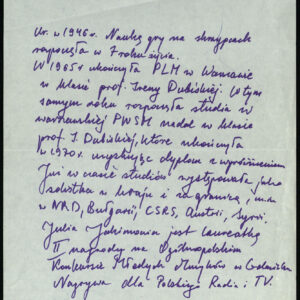 Ur. w 1946 r. Naukę gry na skrzypcach
rozpoczęła w 7 roku życia.
W 1965 r ukończyła PLM w Warszawie
w klasie prof. Ireny Dubiskiej. W tym
samym roku rozpoczęła studia w
warszawskiej PWSM nadal w klasie
prof. I. Dubiskiej, które ukończyła
w 1970 r. uzyskując dyplom z wyróżnieniem
Już w czasie studiów występowała jako
solistka w kraju i za granicą, m.in.
w NRD, Bułgarii, CSRS, Austrii, Syrii.
Julia Jakimowicz jest laureatką
II nagrody na Ogólnopolskim
Konkursie Młodych Muzyków w Gdańsku
Nagrywa dla Polskiego Radia i TV.